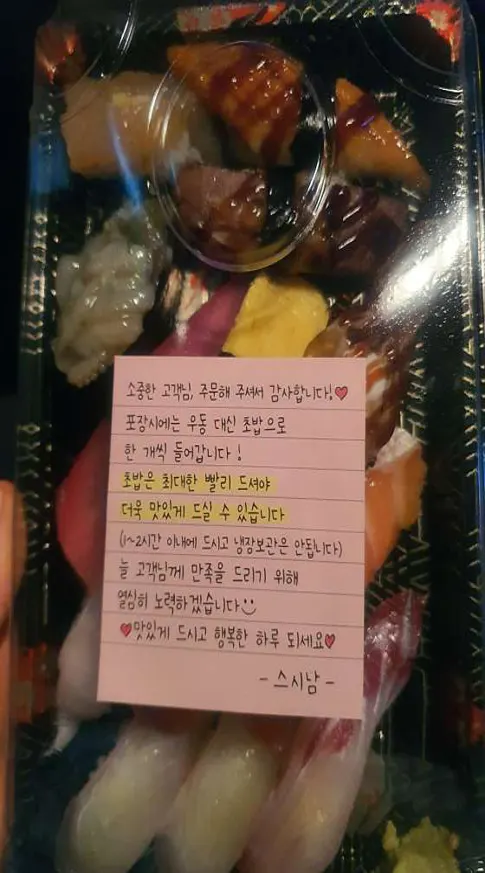 소중한 고객님, 주문해 주셔서 감사합니다!♥
포장시에는 우동 대신 초밥으로
한 개씩 들어갑니다!
초밥은 최대한 빨리 드셔야
더욱 맛있게 드실 수 있습니다
(1~2시간 이내에 드시고 냉장보관은 안됩니다)
늘 고객님께 만족을 드리기 위해
열심히 노력하겠습니다
♥맛있게 드시고 행복한 하루 되세요♥
- 스시남 -